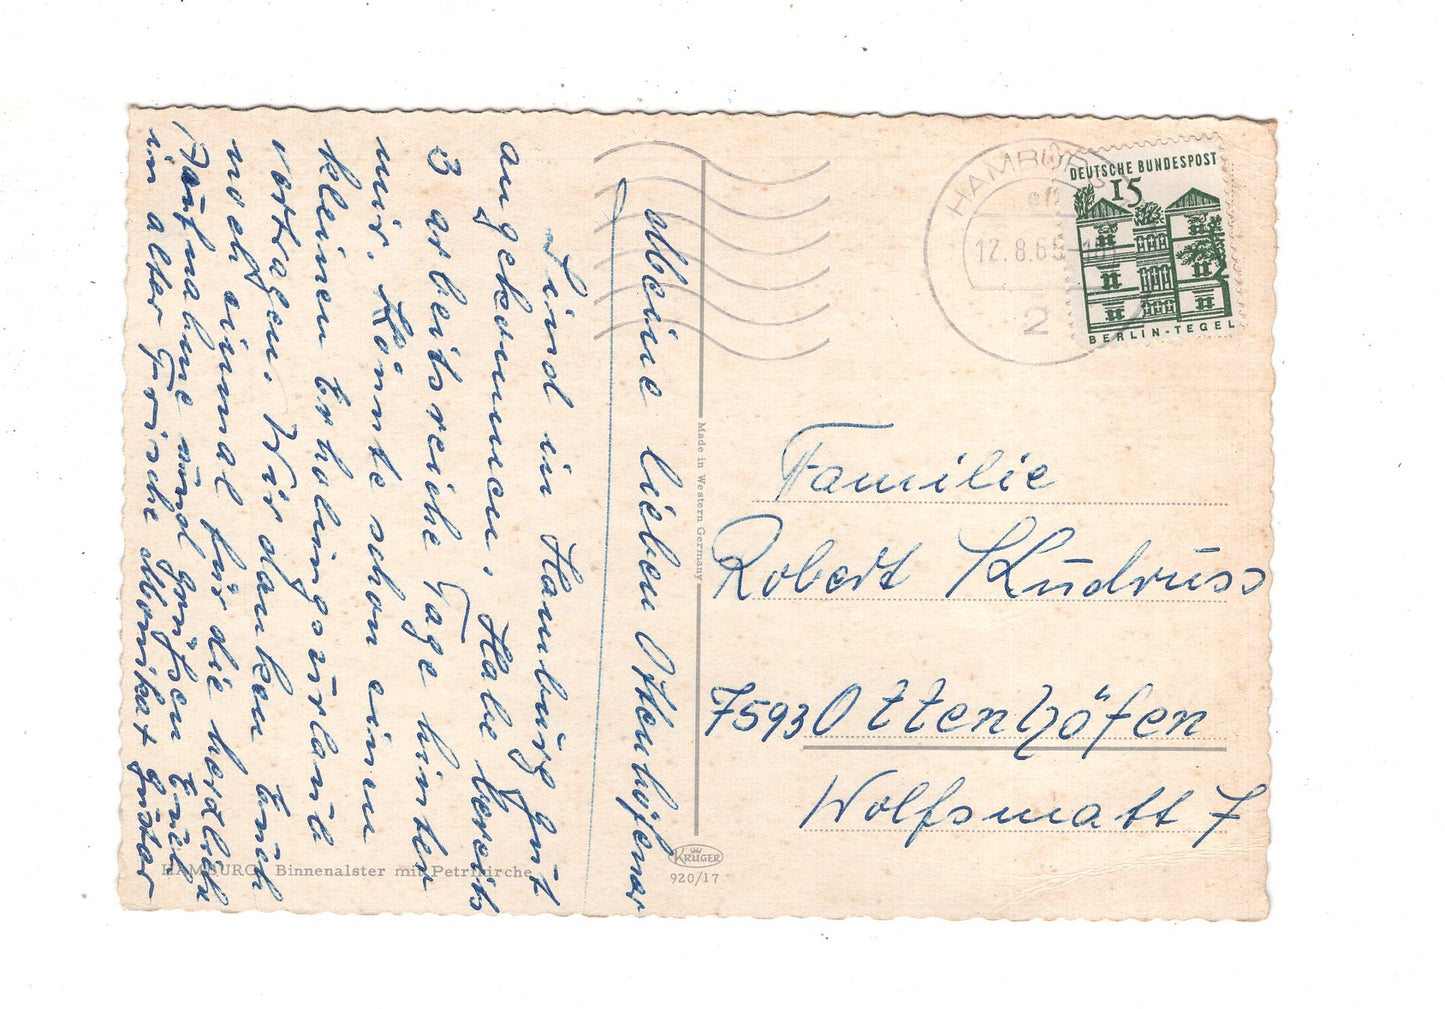 Meine lieben Ottenhöfener
Sind in Hamburg gut
angekommen. Habe bereits
3 arbeitsreiche Tage hinter
mir. Könnte schon einen
kleinen Erholungsurlaub
vertragen. Wir danken Euch
noch einmal für die herzlich
Aufnahme und grüßen Euch
in alter Frische Monika + Gustav
HAMBURG, Binnenalster mit Petrikirche
Made in Western Germany
KRÜGER
920/17
HAMBURG
12.8.65
2
DEUTSCHE BUNDESPOST
15
BERLIN-TEGEL
Familie
Robert
7593 Ottenhöfen
Wolfsmatt 7